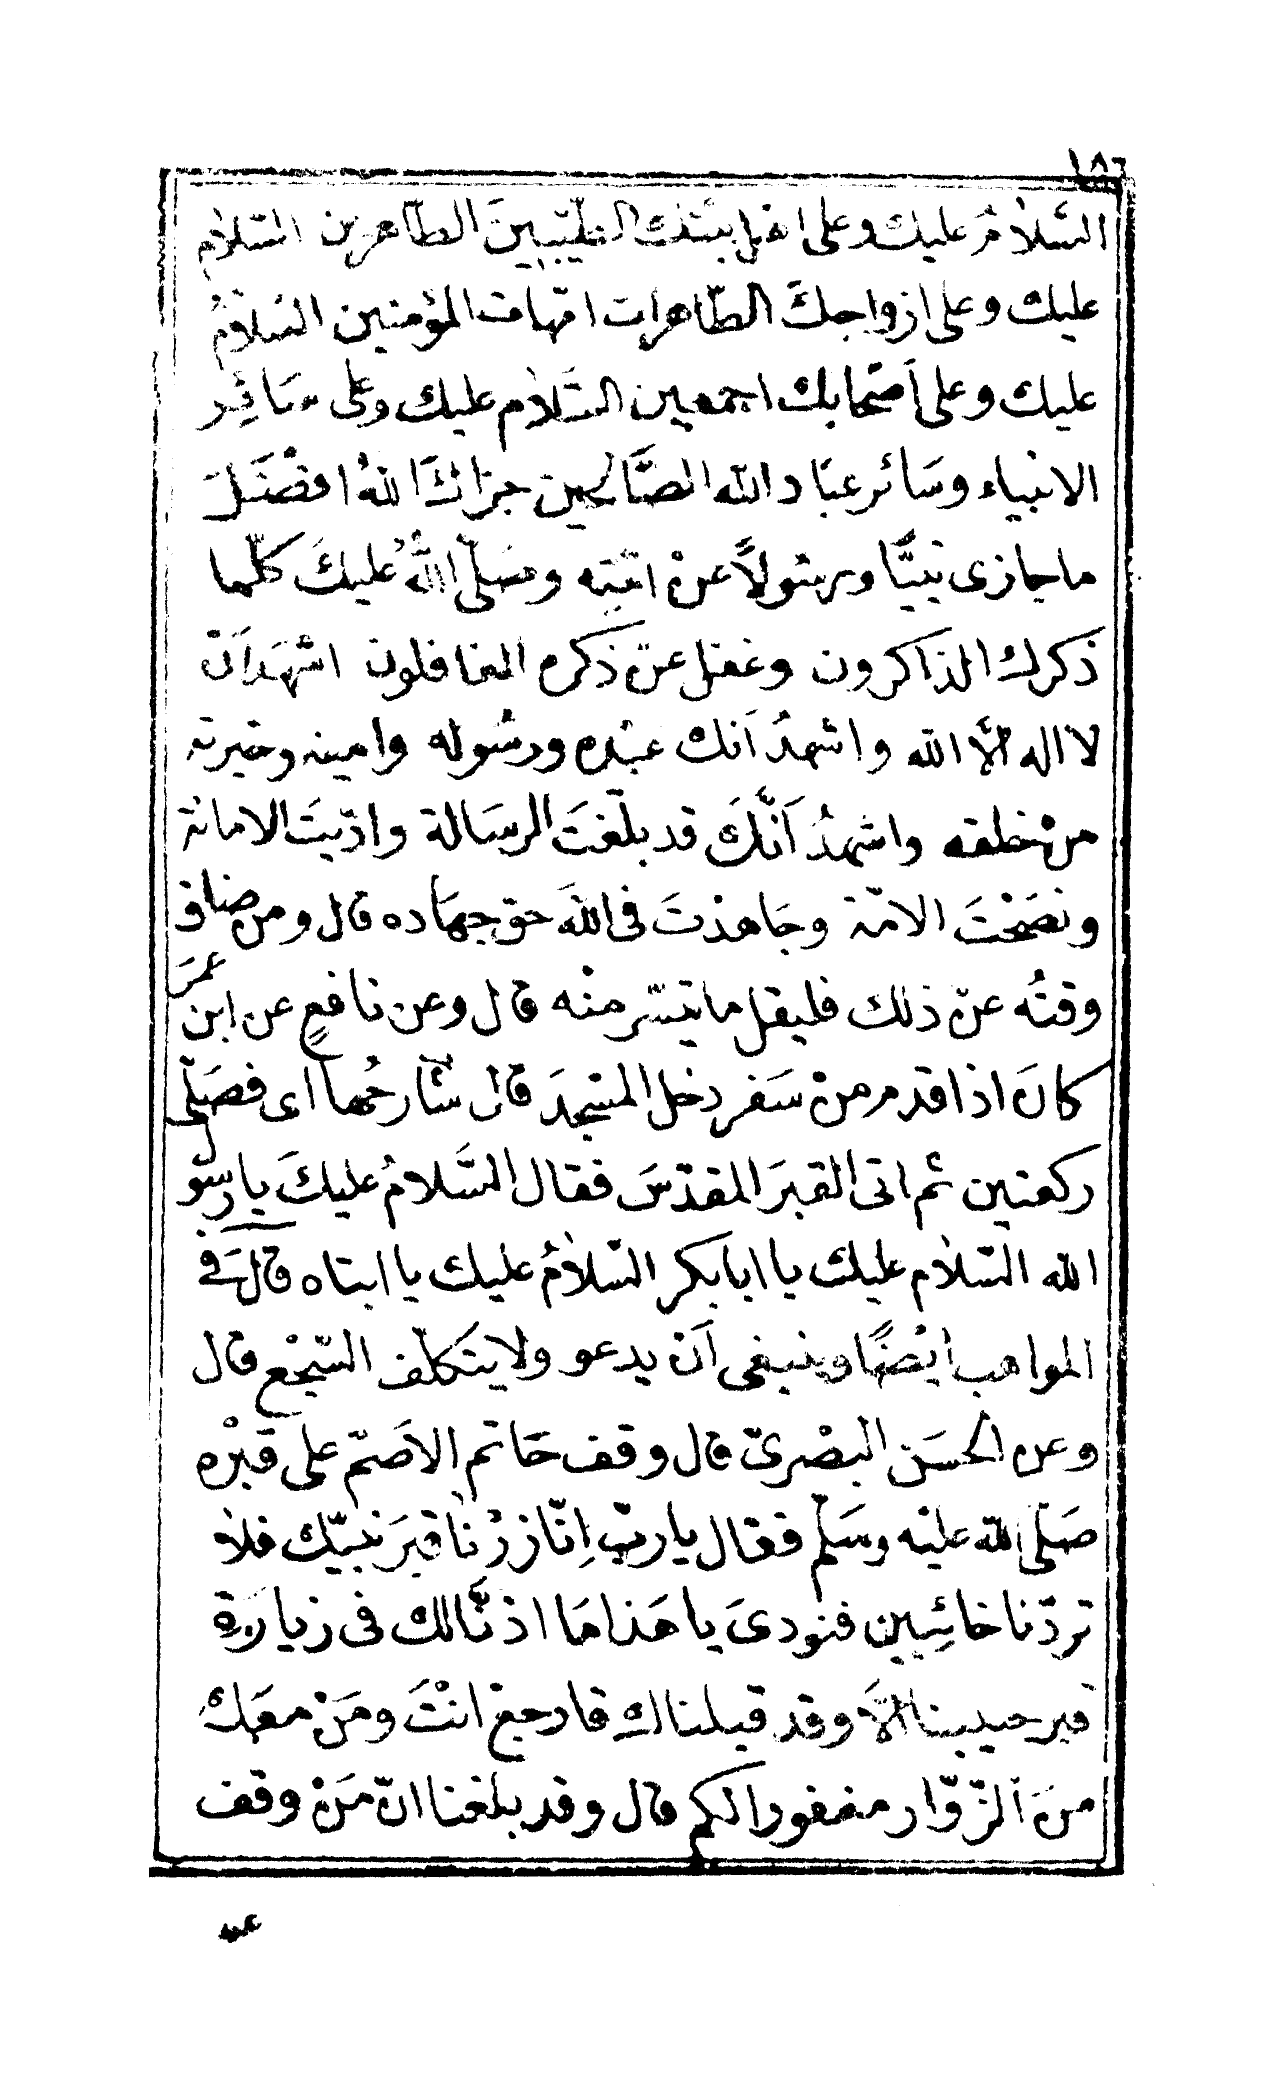 ١٨٦
السّلامُ عليك وعلى اهل بيتك الطيّبينَ الطّاهرين السّلام
عليك وعلى ازواجكَ الطّاهرات امّهات المؤمنين السّلامُ
عليك وعلى اَصحابك اجمعين السَّلام عليك وعلى سَائِر
الانبياء وسَائر عبَاد الله الصَّالحين جزاكَ اللهُ افضَلَ
ما جازى نبيًّا ورسُولاً عنْ امّته وصَلّى اللهُ عليكَ كلّما
ذكرك الذاكرون وغفل عنْ ذكره الغافلون اشهَد اَنْ
لا اله الّا الله واشهدُ اَنك عبْده ورسُوله وامينه وخيرته
منْ خلقه واشهدُ اَنَّكَ قد بلّغتَ الرسَالة وادّيتَ الامانة
ونصَحْتَ الامّة وجَاهدْتَ فى اللهَ حق جهَاده قال ومن ضاق
وقتُه عنْ ذلك فليقل ما تيسّر منْه قال وعن نافعٍ عن ابن عمرَ
كانَ اذا قدم منْ سَفر دخل المسْجدَ قال شَارحُها اى فصَلّى
ركعتين ثم اتى القبرَ المقدّسَ فقال السَّلامُ عليكَ يا رسول
الله السّلام عليك يا ابا بكر السّلامُ عليك يا ابتاه قالَ فى
المواهب اَيْضًا وينبغى اَنْ يدعو ولا يتكلّف السّجْع قال
وعن الحسَن البصْرىّ قال وقف حَاتم الاَصَمّ على قبْره
صَلّى الله عليْه وسَلّم فقال يا ربّ اِنّا زرْنا قبرَ نبيّك فلا
تردّنا خائِبين فنودىَ يا هَذا مَا اذنَّا لك فى زيارَةِ
قبر حبيبنا الّاَ وقد قبلناك فارجعْ انْتَ ومَنْ معَك
منَ الزّوّار مغفورا لكم قال وقد بلغنا انّ مَنْ وقف